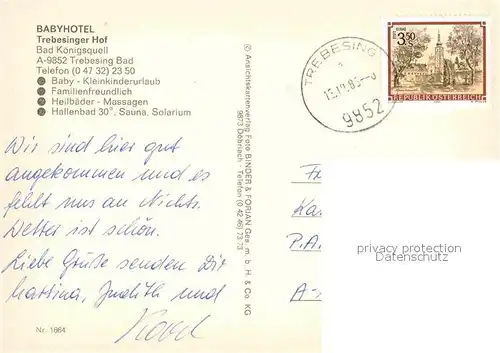 BABYHOTEL
Trebesinger Hof
Bad Königsquell
A-9852 Trebesing Bad
Telefon (0 47 32) 23 50
Baby - Kleinkinderurlaub
Familienfreundlich
Heilbäder - Massagen
Hallenbad 30°, Sauna, Solarium
Wir sind hier gut
angekommen und es
fehlt uns an Nichts.
Wetter ist schön.
Liebe Grüße senden Dir
Martina, Judith und
Nr. 1864
© Ansichtskartenverlag Foto BINDER & FORIAN Ges. m. b. H. & Co. KG
9873 Döbriach - Telefon (0 42 46) 73 73
TREBESING
9852
3.50
S
REPUBLIK ÖSTERREICH
P.A.
A-
privacy protection
Datenschutz